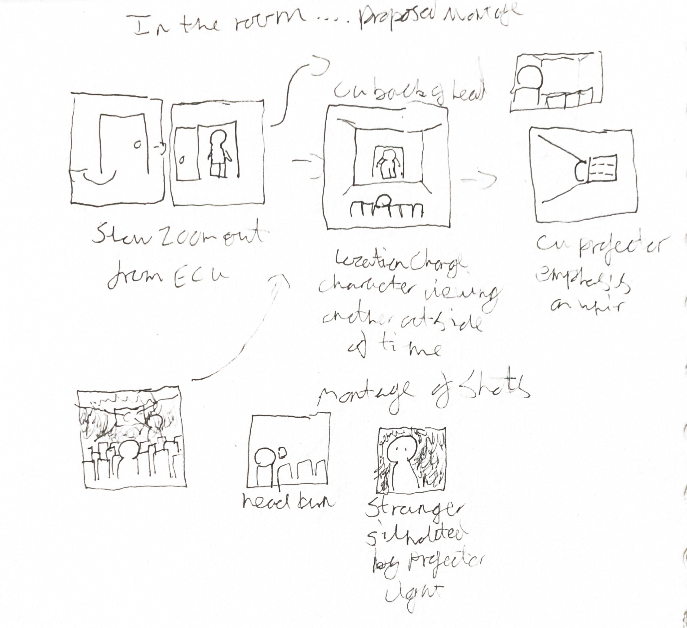 In the room .... Proposed Montage
CU back of head
Slow Zoom out
from ECU
Location Change
character viewing
another outside
of time
CU projector
emphasis
on
Montage of Shots
head turn
Stranger
silhouted
by Projector
light